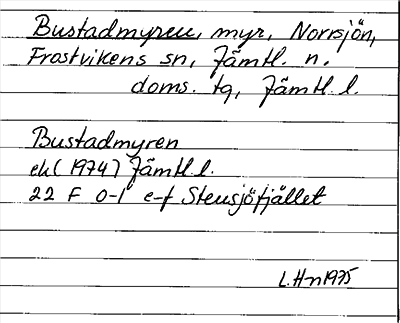 Bustadmyren, myr, Norrsjön,
Frostvikens sn, Jämtl. n.
doms. tg, Jämtl. l.
Bustadmyren
ek (1974) Jämtl. l.
22 F 0-1 e-f Stensjöfjället
L.Hn 1975